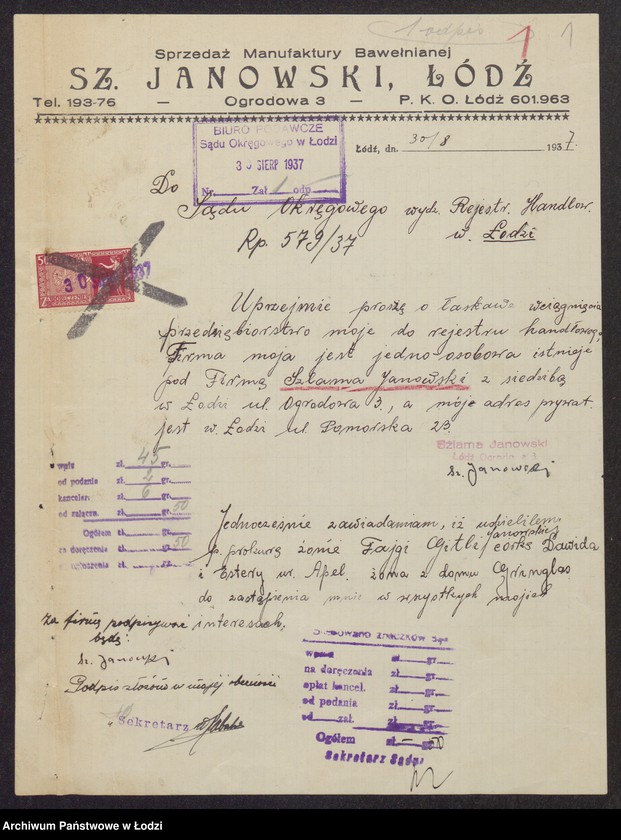 1 odpis
1 1
Sprzedaż Manufaktury Bawełnianej
SZ. JANOWSKI, ŁÓDŹ
Tel. 193-76 — Ogrodowa 3 — P. K. O. Łódź 601.963
BIURO PODAWCZE
Sądu Okręgowego w Łodzi
30 SIERP 1937
Nr. Zał 1 odp
Łódź, dn. 30/8 1937.
Do
Sądu Okręgowego wydz. Rejestr. Handlow.
w. Łodzi
Rp. 579/37
50
30 1937
Uprzejmie proszę o łaskawe wciągnięcie
przedsiębiorstwo moje do rejestru handlowego,
Firma moja jest jedno-osobowa istnieje
pod Firmą Szlama Janowski z siedzibą
w Łodzi ul. Ogrodowa 3., a moje adres prywat.
jest w. Łodzi ul Pomorska 23.
Szlama Janowski
Łódź Ogrodowa 3
Sz. Janowski
wpis zł. 45 gr.
od podania zł. 2 gr.
kancelar. zł. 6 gr.
od załącz. zł. gr. 50
Ogółem zł. gr.
za doręczenie zł. gr. 50
ogłoszenia zł. gr.
Jednocześnie zawiadamiam, iż udzieliłem
p. prokurą żonie Fajgi Gitli Janowskiej córką Dawida
i Estery ur. Apel. żona z domu Grynglas
do zastąpienia mnie w wszystkych mojich
interesach.
Za firmę podpisywać
będę:
Sz. Janowski
Podpis złożono w mojej obecności
Sekretarz
Skasowano znaczków sąd.
wpisu zł. gr.
na doręczenia zł. gr.
opłat kancel. zł. gr.
od podania zł. gr.
od zał. zł. gr.
Ogółem zł. — gr. 50
Sekretarz Sądu
Archiwum Państwowe w Łodzi